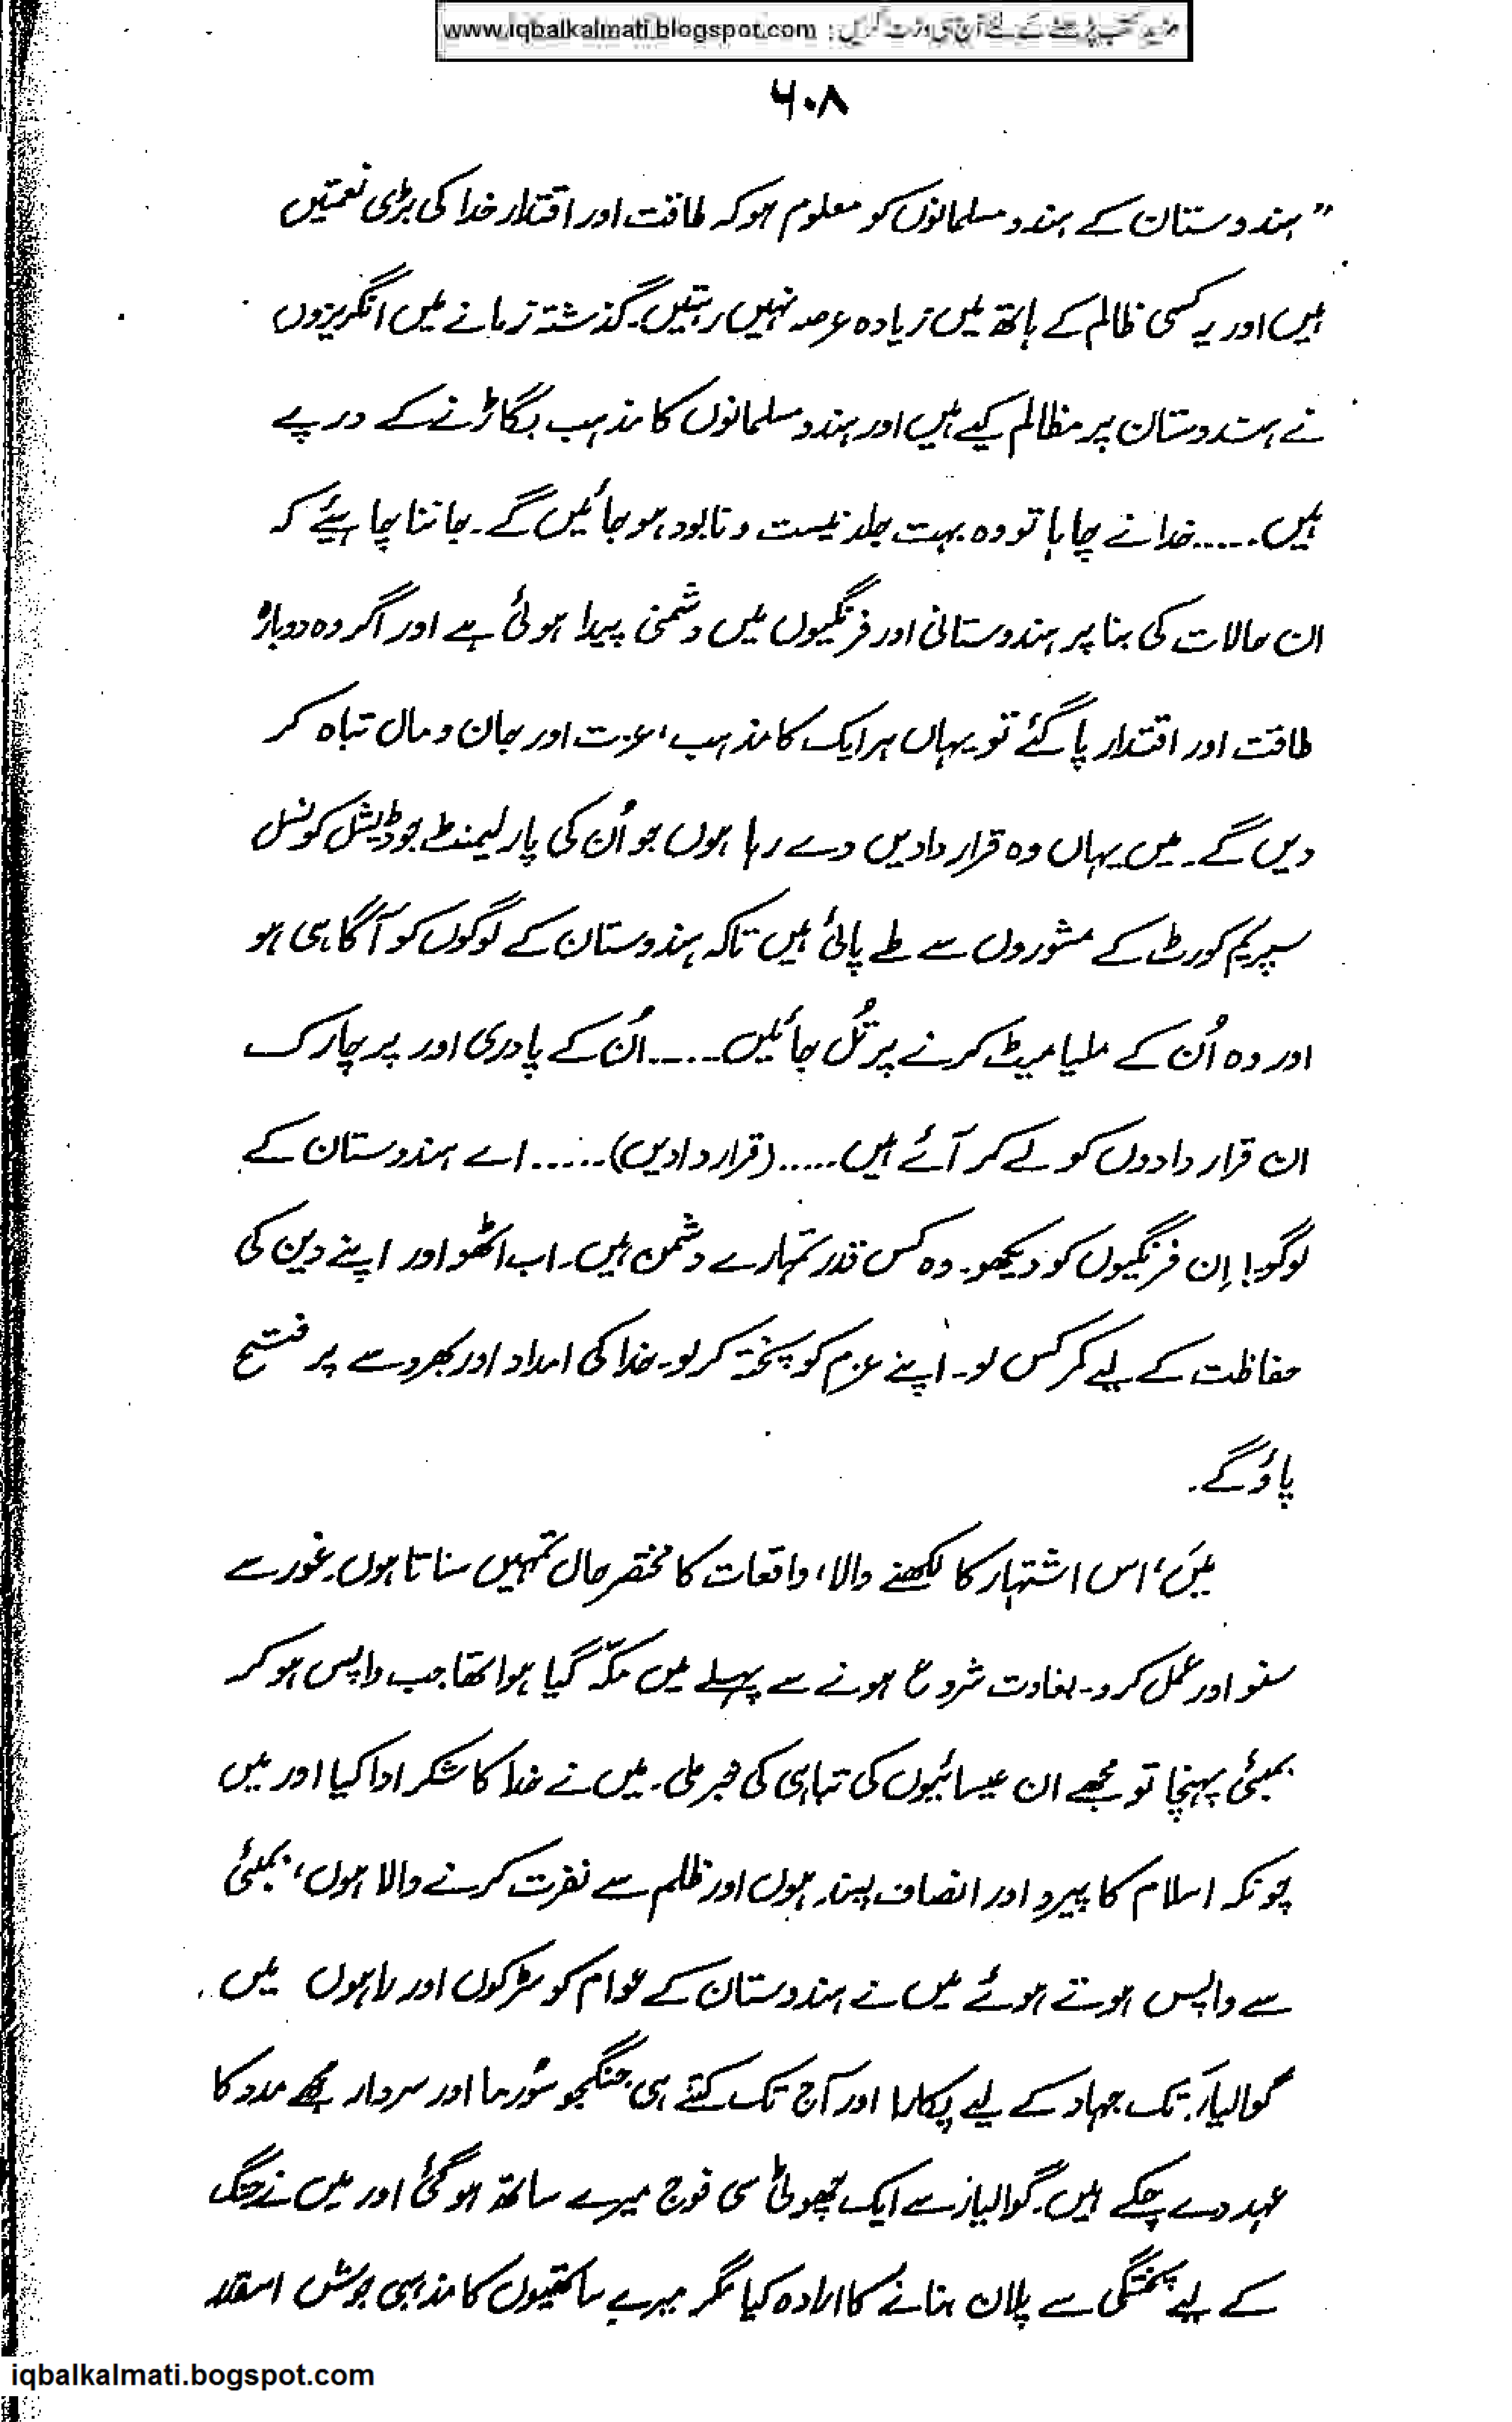 مزید کتب پڑھنے کے لئے آج ہی وزٹ کریں : www.iqbalkalmati.blogspot.com
۶۰۸
”ہندوستان کے ہندو مسلمانوں کو معلوم ہو کہ طاقت اور اقتدار خدا کی بڑی نعمتیں
ہیں اور یہ کسی ظالم کے ہاتھ میں زیادہ عرصہ نہیں رہتیں۔ گذشتہ زمانے میں انگریزوں
نے ہندوستان پر مظالم کیے ہیں اور ہندو مسلمانوں کا مذہب بگاڑنے کے درپے
ہیں..... خدا نے چاہا تو وہ بہت جلد نیست و نابود ہو جائیں گے۔ جاننا چاہیئے کہ
ان حالات کی بنا پر ہندوستانی اور فرنگیوں میں دشمنی پیدا ہوئی ہے اور اگر وہ دوبارہ
طاقت اور اقتدار پا گئے تو یہاں ہر ایک کا مذہب، عزت اور جان و مال تباہ کر
دیں گے۔ میں یہاں وہ قرار دادیں دے رہا ہوں جو اُن کی پارلیمنٹ جوڈیشل کونسل
سپریم کورٹ کے مشوروں سے طے پائی ہیں تاکہ ہندوستان کے لوگوں کو آگاہی ہو
اور وہ اُن کے ملیامیٹ کرنے پر تُل جائیں..... اُن کے پادری اور پرچارک
ان قرار دادوں کو لے کر آئے ہیں..... (قرار دادیں)..... اے ہندوستان کے
لوگو! اِن فرنگیوں کو دیکھو۔ وہ کس قدر تمہارے دشمن ہیں۔ اب اٹھو اور اپنے دین کی
حفاظت کے لیے کمر کس لو۔ اپنے عزم کو پختہ کر لو۔ خدا کی امداد اور بھروسے پر فتح
پاؤ گے۔
میَں، اس اشتہار کا لکھنے والا، واقعات کا مختصر حال تمہیں سناتا ہوں۔ غور سے
سنو اور عمل کرو۔ بغاوت شروع ہونے سے پہلے میں مکّہ گیا ہوا تھا جب واپس ہو کر
بمبئی پہنچا تو مجھے ان عیسائیوں کی تباہی کی خبر ملی۔ میں نے خدا کا شکر ادا کیا اور میں
چونکہ اسلام کا پیرو اور انصاف پسند ہوں اور ظلم سے نفرت کرنے والا ہوں، بمبئی
سے واپس ہوتے ہوئے میں نے ہندوستان کے عوام کو سڑکوں اور راہوں میں
گوالیار تک جہاد کے لیے پکارا اور آج تک کتنے ہی جنگجو سُورما اور سردار مجھے مدد کا
عہد دے چکے ہیں۔ گوالیار سے ایک چھوٹی سی فوج میرے ساتھ ہو گئی اور میں نے جنگ
کے لیے پختگی سے پلان بنانے کا ارادہ کیا مگر میرے ساتھیوں کا مذہبی جوش اسقدر
iqbalkalmati.bogspot.com